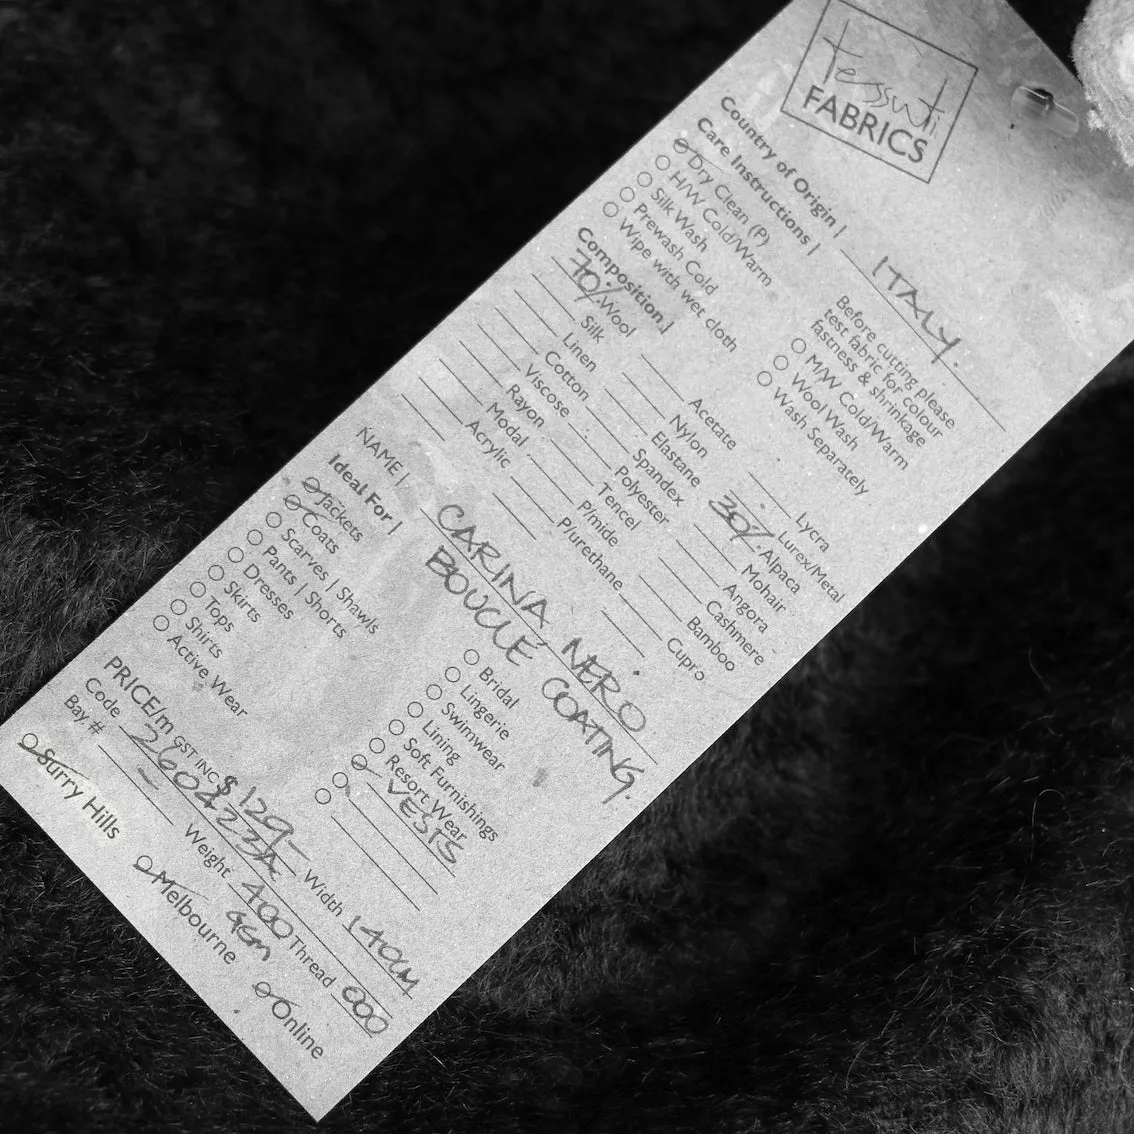 tessuti
FABRICS
Country of Origin | ITALY.
Care Instructions |
Dry Clean (P)
H/W Cold/Warm
Silk Wash
Prewash Cold
Wipe with wet cloth
Before cutting please
test fabric for colour
fastness & shrinkage
M/W Cold/Warm
Wool Wash
Wash Separately
Composition |
70% Wool
Silk
Linen
Cotton
Viscose
Rayon
Modal
Acrylic
Acetate
Nylon
Elastane
Spandex
Polyester
Tencel
P/mide
P/urethane
Lycra
Lurex/Metal
30% Alpaca
Mohair
Angora
Cashmere
Bamboo
Cupro
NAME | CARINA NERO
BOUCLE COATING.
Ideal For |
Jackets
Coats
Scarves | Shawls
Pants | Shorts
Dresses
Skirts
Tops
Shirts
Active Wear
Bridal
Lingerie
Swimwear
Lining
Soft Furnishings
Resort Wear
VESTS
PRICE/m GST INC $ 129- Width 140cm
Code 260423A Weight 400 gsm Thread 000
Bay # -
Surry Hills Melbourne Online